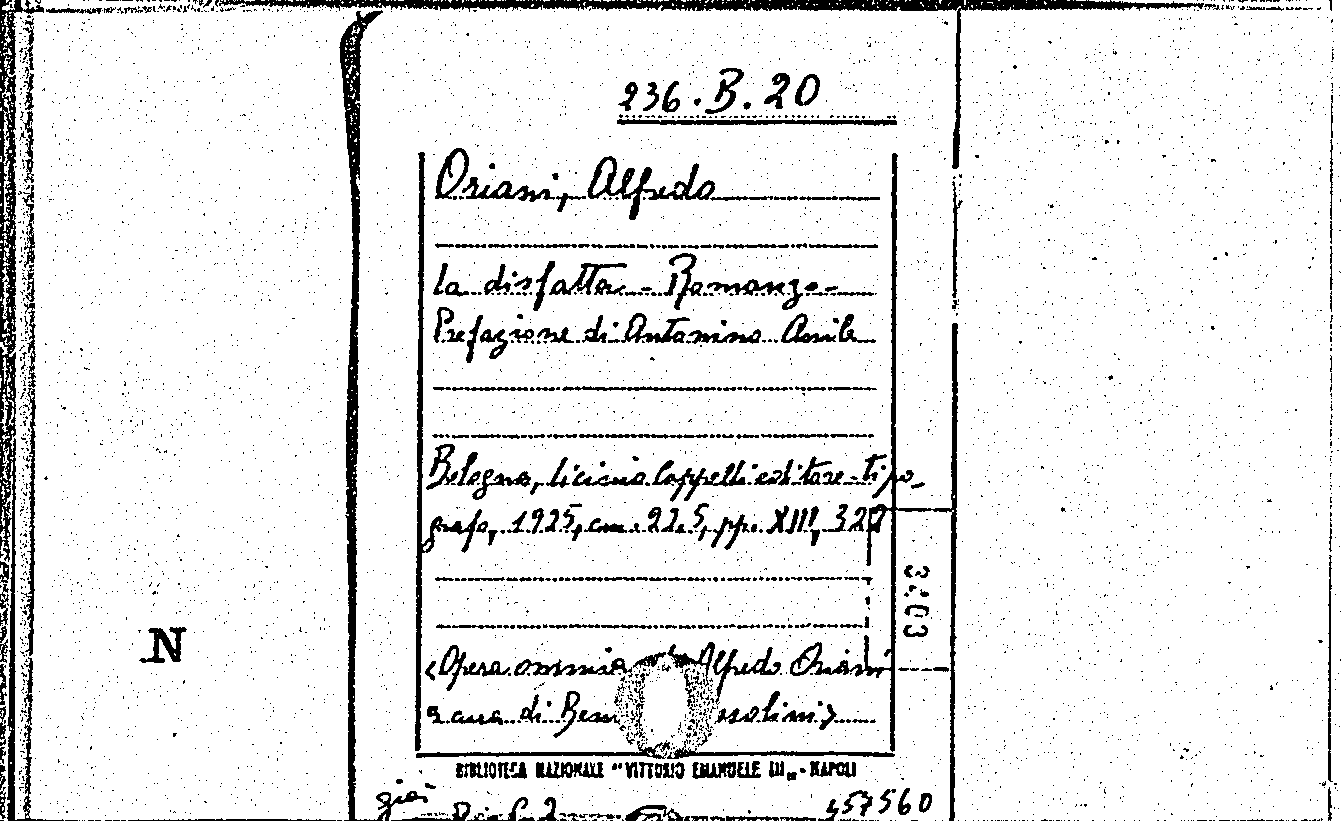 236.B.20
Oriani, Alfredo
la disfatta - Romanzo -
Prefazione di Antonino Anile
Bologna, Licinio Cappelli editore-tipo-
grafo, 1925, cm. 22.5, pp. XIII, 327
3403
N
<Opera omnia Alfredo Oriani
a cura di Ben ssolini>
BIBLIOTECA NAZIONALE "VITTORIO EMANUELE III" - NAPOLI
già
457560